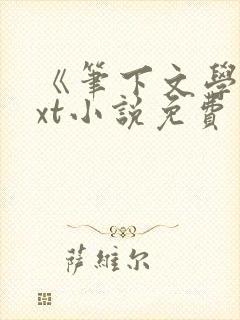 《筆下文學
xt小說免費
萨維尔